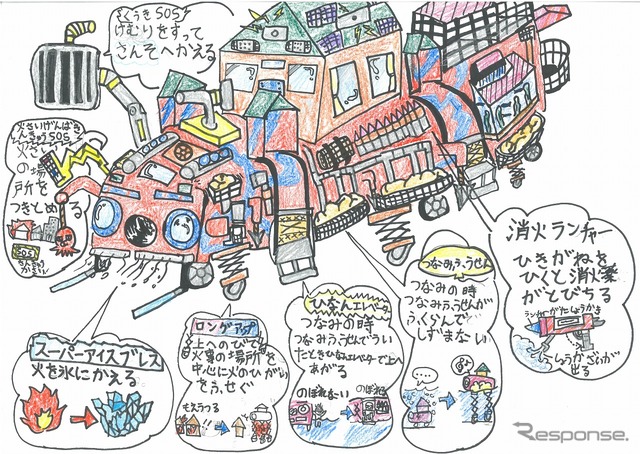 くうきSOS
けむりをすって
さんそへかえる
火さいげんばき
んきゅうSOS
火さい
の場
所を
つきとめる
SOS
スーパーアイスブレス
火を氷にかえる
ロングアップ
上へのびて
火事の場所を
中心に火のひがい
をふせぐ
もえうつる
!!
ひなんエレベーター
つなみの時
つなみふうせんでうい
たときひなんエレベーターで上へ
あがる
のぼれない
のぼれる
つなみふうせん
つなみの時
つなみふうせんが
ふくらんで
しずまない
消火ランチャー
ひきがねを
ひくと消火薬
がとびちる
しょうかざいが
出る
Response.